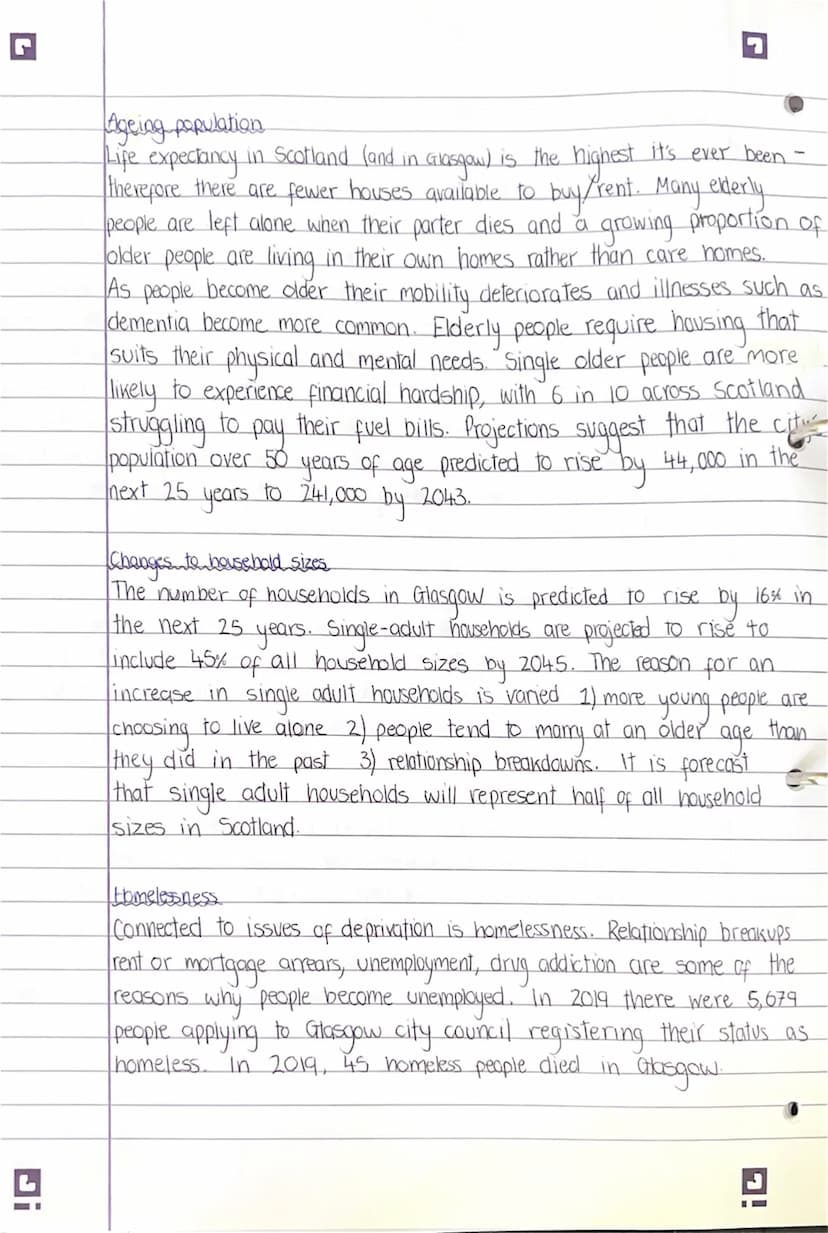 Ageing population
Life expectancy in Scotland (and in Glasgow) is the highest it's ever been -
therefore there are fewer houses available to buy/rent. Many elderly
people are left alone when their parter dies and a growing proportion of
older people are living in their own homes rather than care homes.
As people become older their mobility deteriorates and illnesses such as
dementia become more common. Elderly people require housing that
suits their physical and mental needs. Single older people are more
likely to experience financial hardship, with 6 in 10 across Scotland
struggling to pay their fuel bills. Projections suggest that the city's
population over 50 years of age predicted to rise by 44,000 in the
next 25 years to 241,000 by 2043.
Changes to household sizes
The number of households in Glasgow is predicted to rise by 16% in
the next 25 years. Single-adult households are projected to rise to
include 45% of all household sizes by 2045. The reason for an
increase in single adult households is varied 1) more young people are
choosing to live alone 2) people tend to marry at an older age than
they did in the past 3) relationship breakdowns. It is forecast
that single adult households will represent half of all household
sizes in Scotland.
Homelessness
Connected to issues of deprivation is homelessness. Relationship breakups
rent or mortgage arrears, unemployment, drug addiction are some of the
reasons why people become unemployed. In 2019 there were 5,679
people applying to Glasgow city council registering their status as
homeless. In 2019, 45 homeless people died in Glasgow.